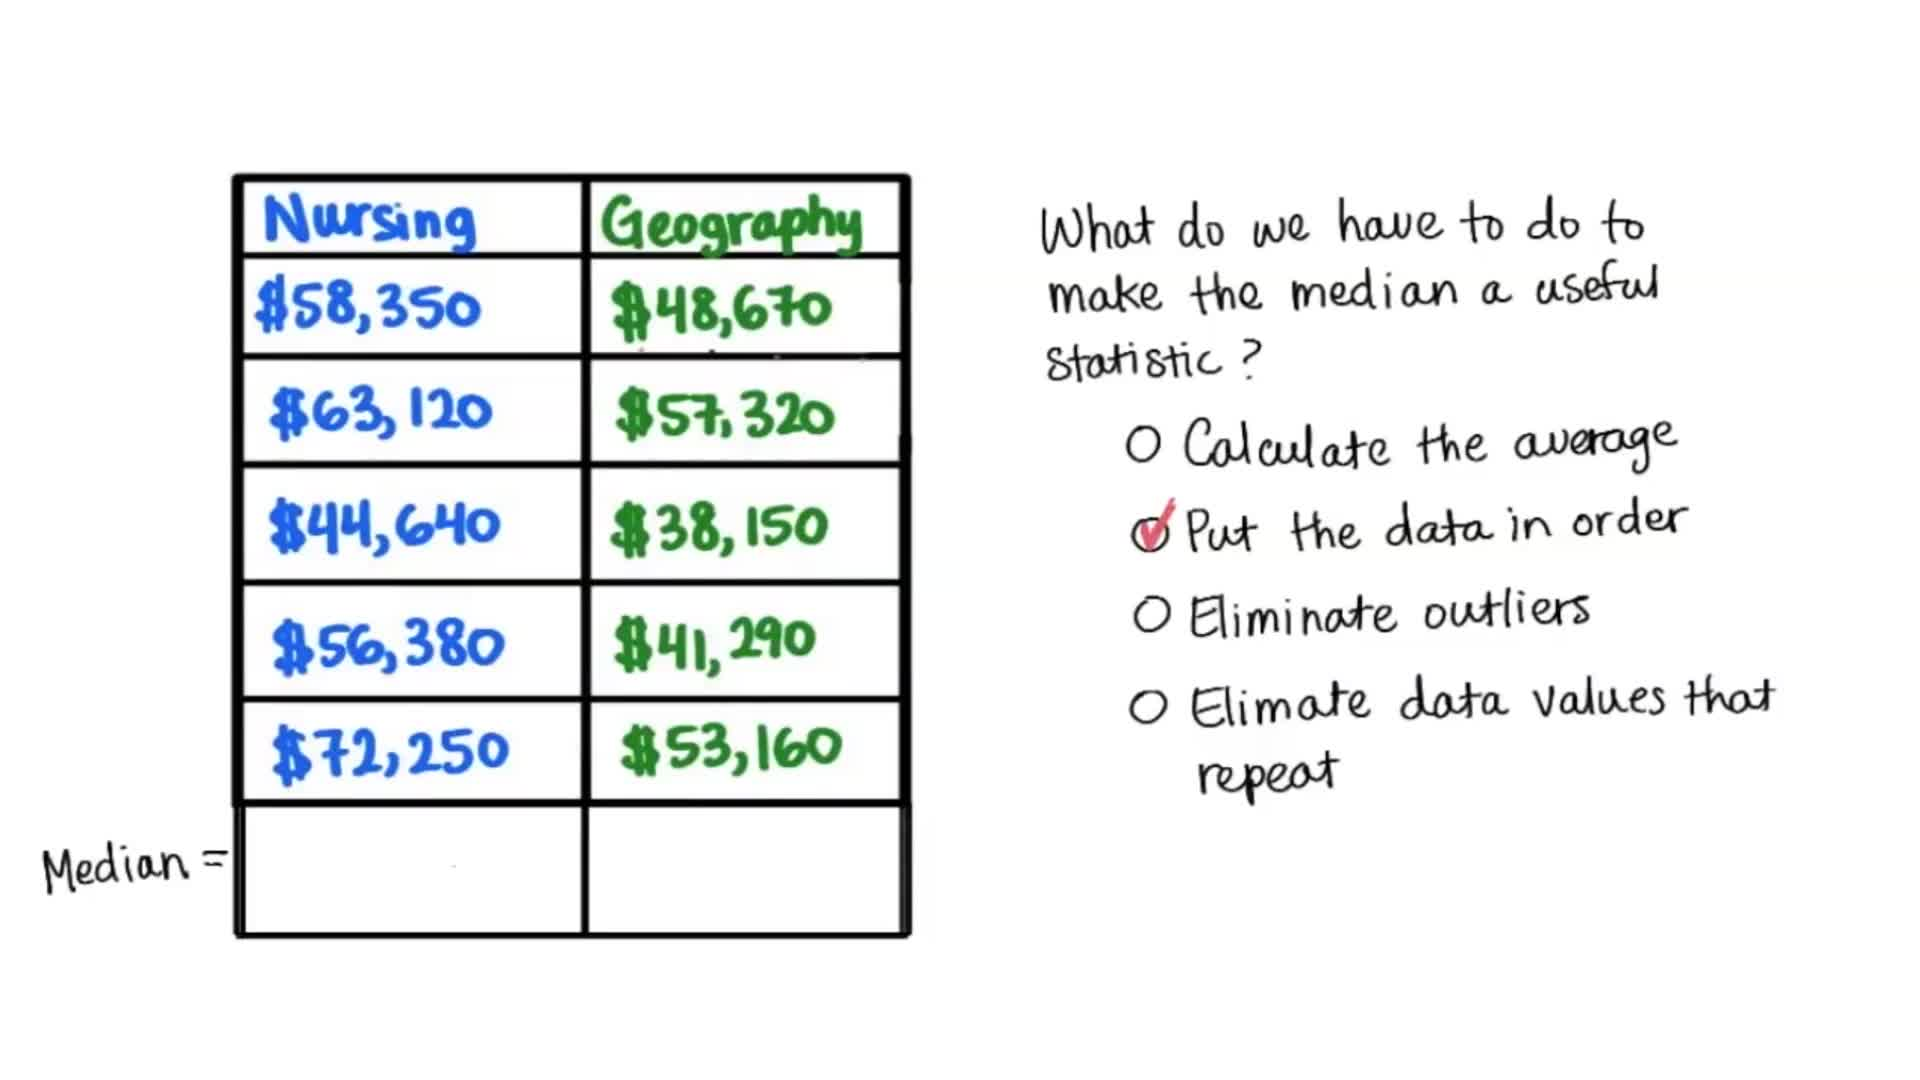 Nursing Geography
$58,350 $48,670
$63,120 $57,320
$44,640 $38,150
$56,380 $41,290
$72,250 $53,160
Median =
What do we have to do to
make the median a useful
statistic?
Calculate the average
Put the data in order
Eliminate outliers
Elimate data values that
repeat